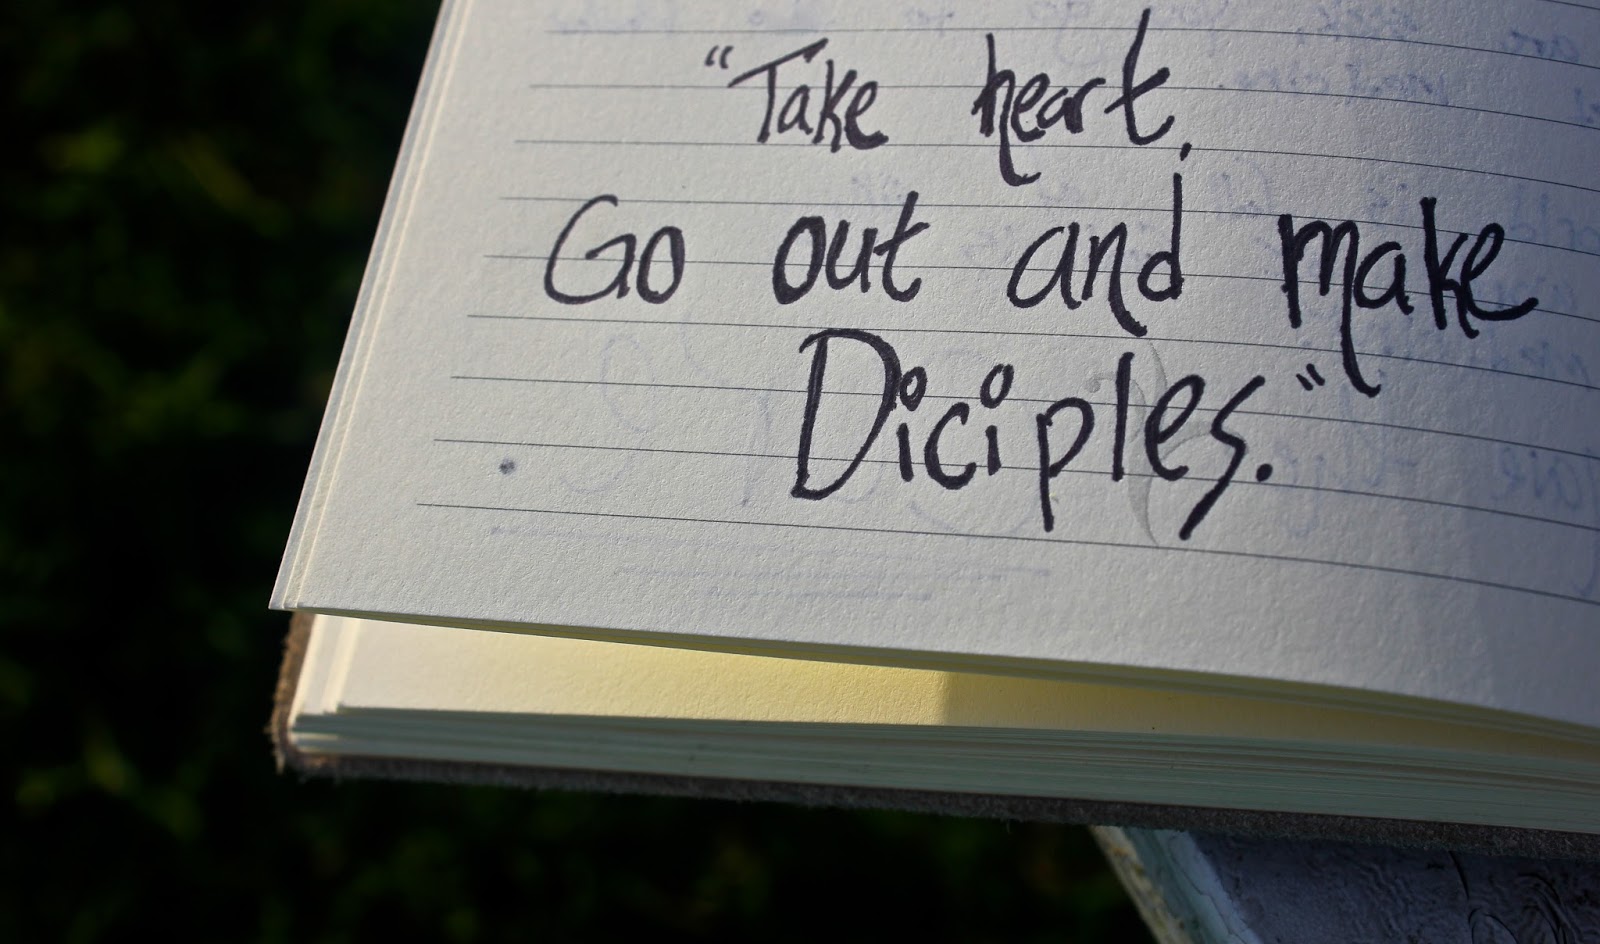 "Take heart,
Go out and make
Diciples."